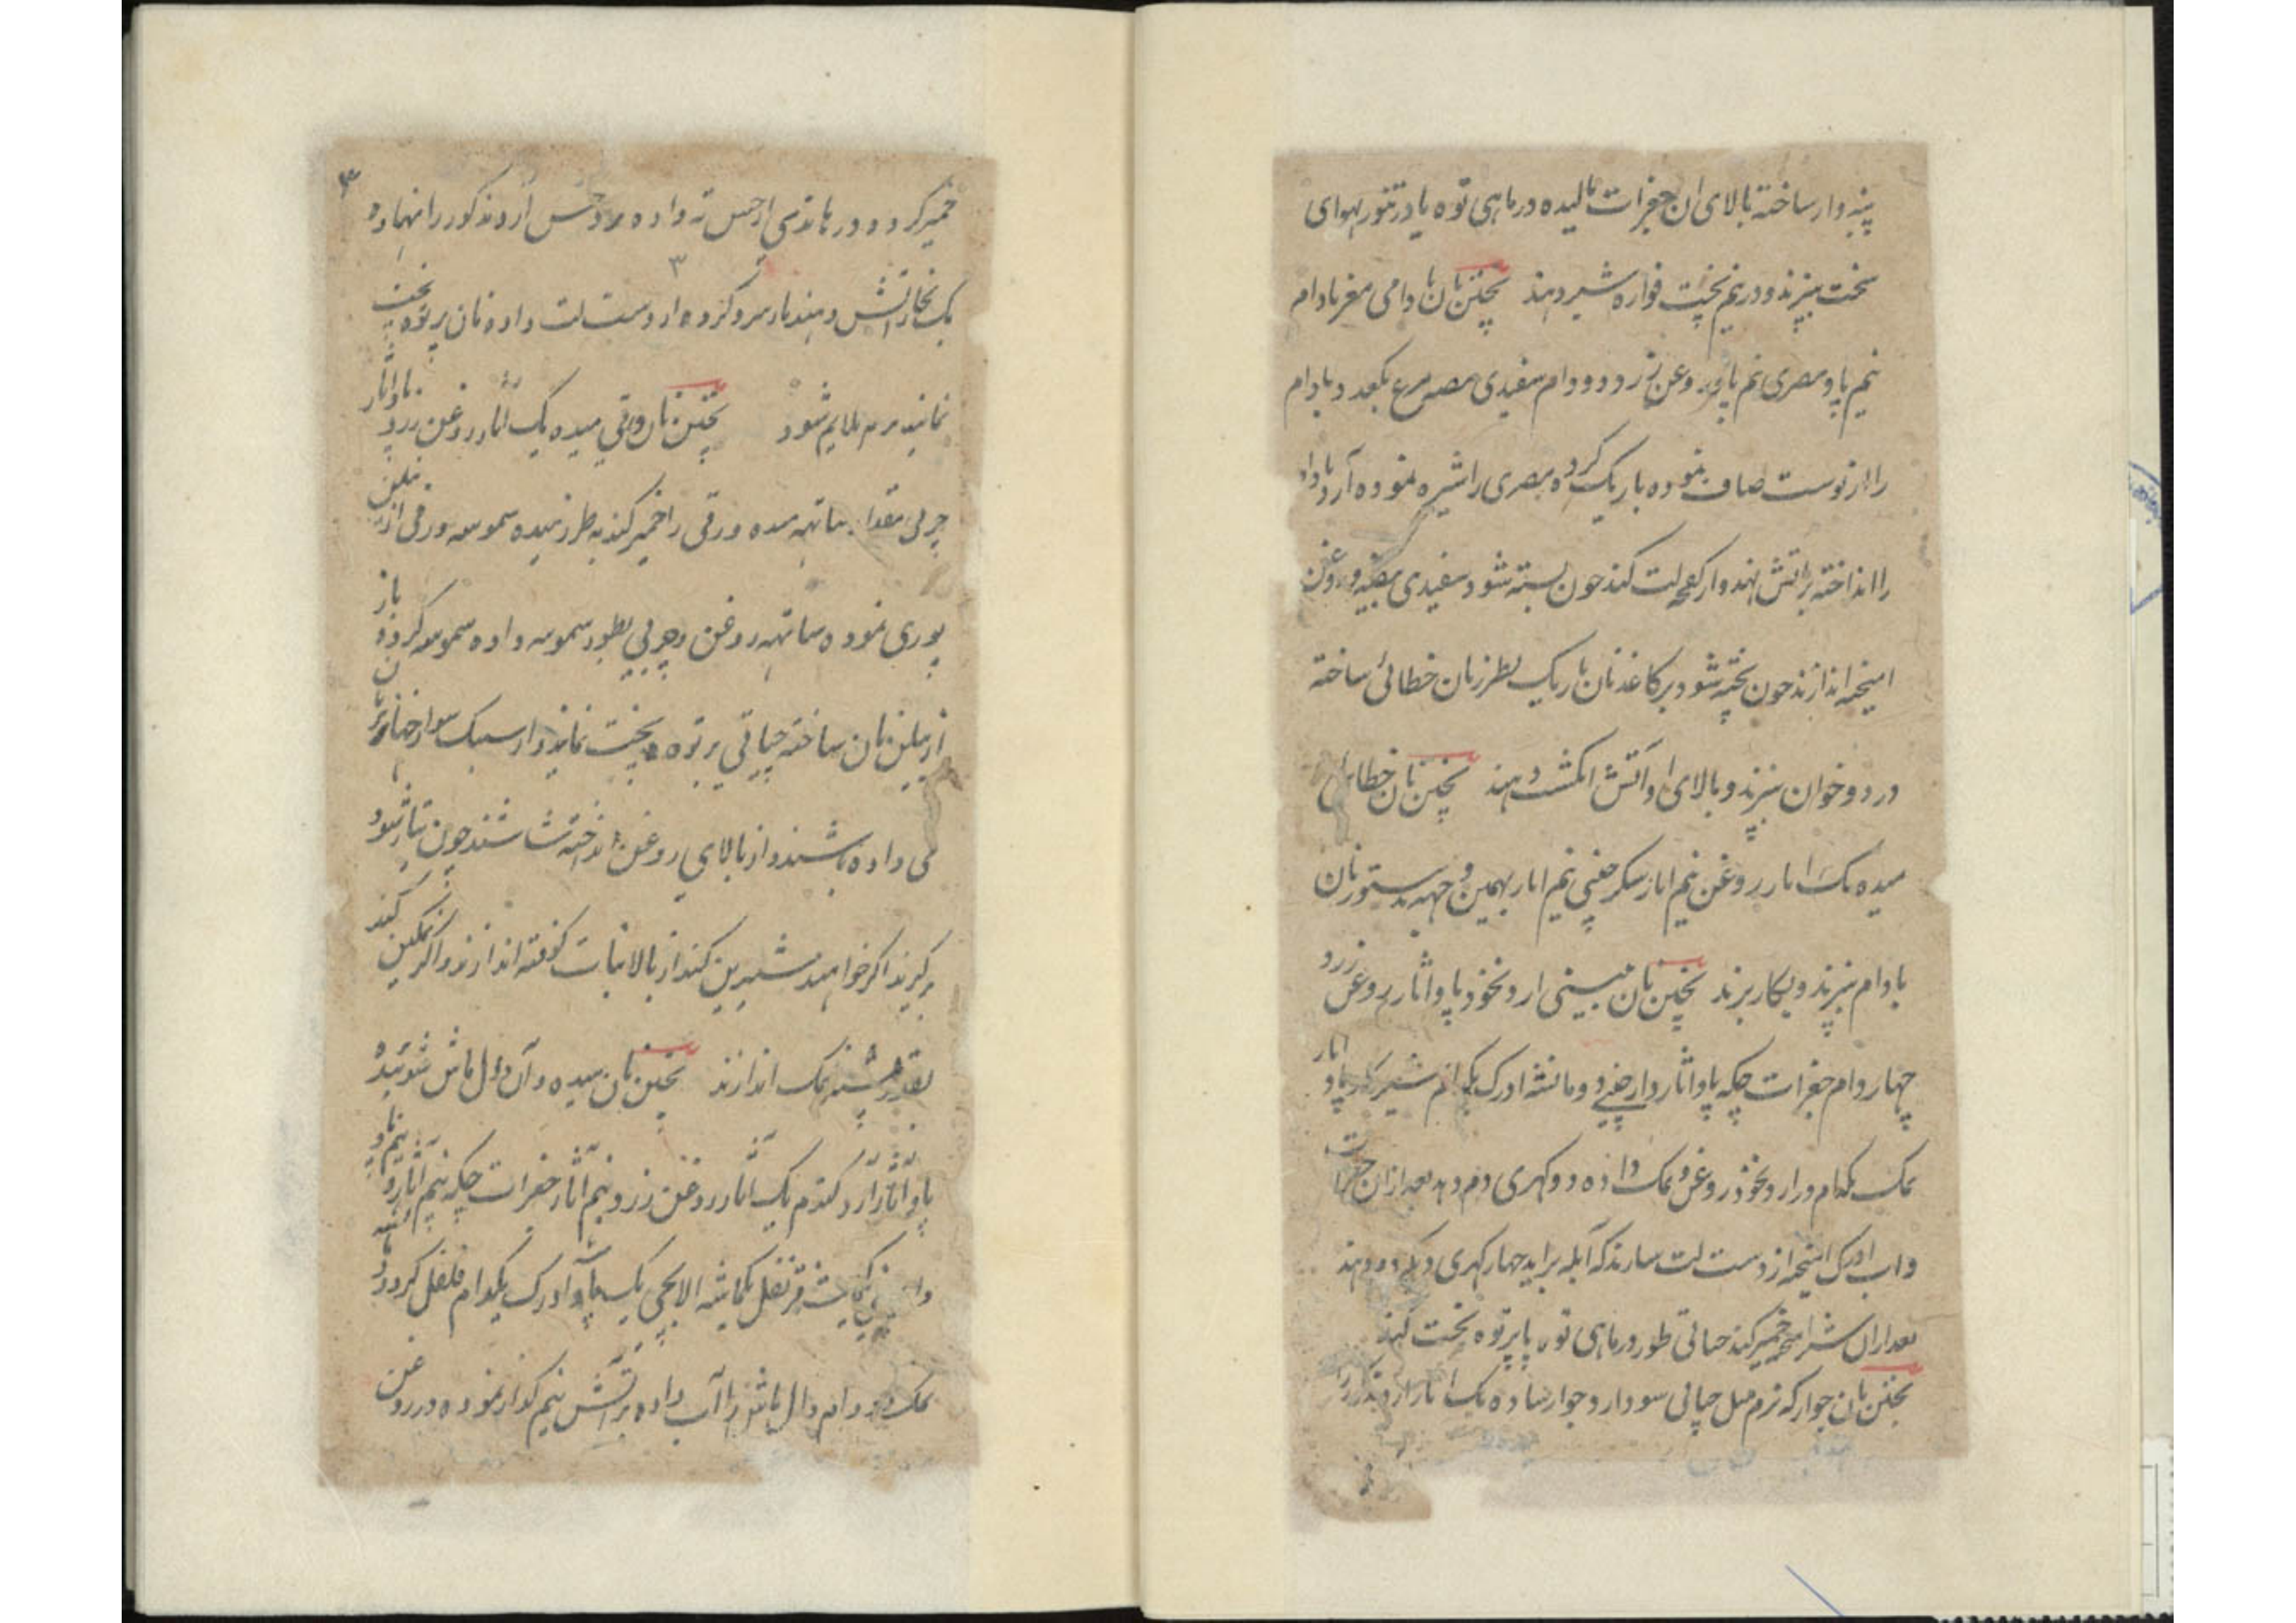 پنبه وار ساخته بالای ان جغرات مالیده در ماهی توه یا در تنور بهوای
سخت بپزند و در نیم پخت فواره شیر دهند پختن نان بادامی مغز بادام
نیم پاو مصری نیم پاو روغن زرد دو دام سفیدی بیضه مرغ یکعدد بادام
را از پوست صاف نموده باریک کرده مصری را شیره نموده آرد بادام
را انداخته بر اتش نهند و از کفچه لت کنند چون بسته شود سفیدی بیضه و روغن
امیخته اندازند چون پخته شود بر کاغذ نان باریک بطرز نان خطائی ساخته
در دو خوان بپزند و بالای او آتش انگشت دهند پختن نان خطائی
میده یک اثار روغن نیم اثار شکر چینی نیم اثار بهمین وجهه بدستور نان
بادام بپزند و بکار برند پختن نان بیسنی ارد نخود پاو اثار روغن زرد
چهار دام جغرات چکه پاو اثار دارچینی دو ماشه ادرک یکدام شیر پاو اثار
نمک یکدام در ارد نخود روغن و نمک داده دو کهری دم دهد بعد ازان جغرات
و اب ادرک امیخته از دست لت سازند که آبله براید چهار کهری دیگر دم دهند
بعد ازان شیر امیخته خمیر کنند چپاتی طور در ماهی توه یا بر توه پخت کنند
پختن نان جوار که نرم مثل چپاتی سود ارد جوار ساده یک اثار ارد
۳
خمیر کرده در هاندی ته داده آرد مذکور را نهاده
۳
یک بخار اتش دهند باز سرد کرده از دست لت داده نان بر توه پخت
نمایند نرم ملایم شود پختن نان ورقی میده یک اثار روغن زرد پاو اثار
چربی مقدار ساتهه میده ورقی را خمیر کند به طرز میده سموسه ورقی از بیلن
پوری نموده ساتهه روغن و چربی بطور سموسه داده سموسه کرده باز
از بیلن نان ساخته چپاتی بر توه پخت نمایند و از سبک سوراخها نان
می داده باشند و از بالای روغن انداخته باشند چون تیار شود
برگیرند اگر خواهند شیرین کنند از بالا نبات کوفته اندازند و اگر نمکین کنند
بقدر نمک اندازند پختن نان میده و آن دال ماش شوئیده
پاو اثار آرد گندم یک اثار روغن زرد نیم اثار جغرات چکه نیم اثار
قرنفل یکماشه الایچی یک ماشه ادرک یکدام فلفل گرد
نمک دو دام دال ماش را آب داده بر آتش نیم گداز نموده در روغن